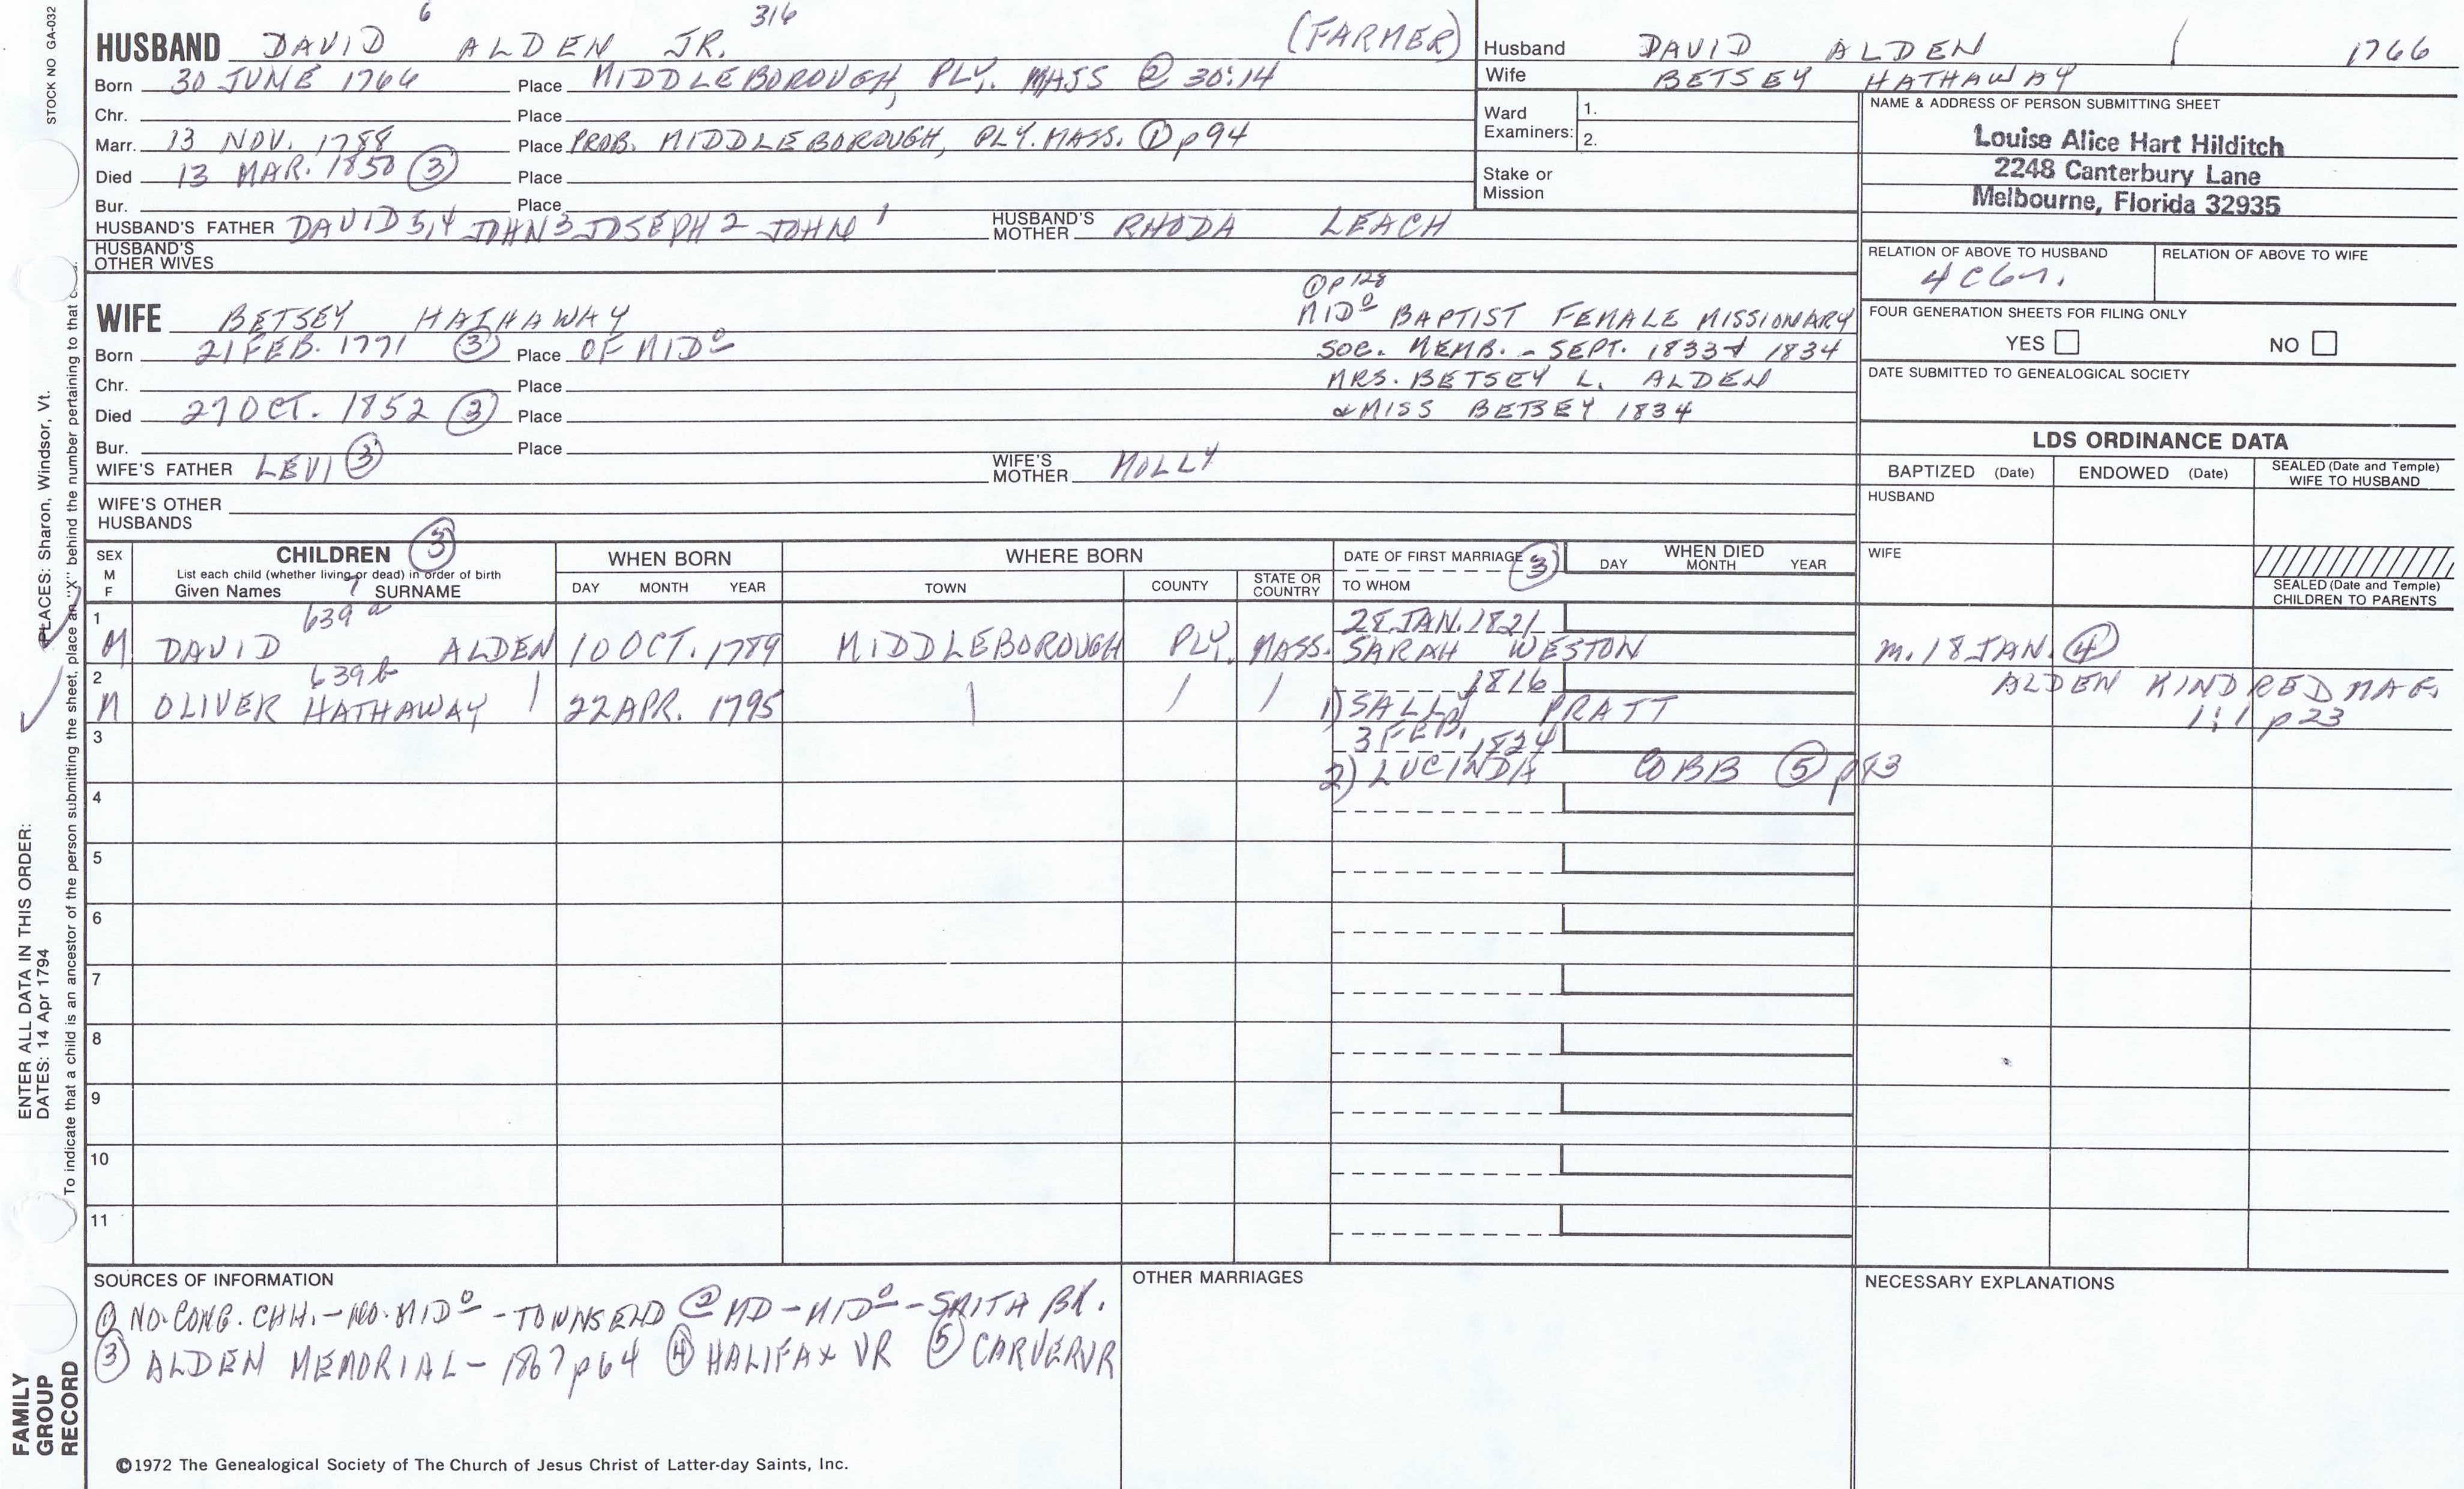 STOCK NO GA-032
6 316
HUSBAND DAVID ALDEN JR. (FARMER)
Born 30 JUNE 1766 Place MIDDLEBOROUGH, PLY. MASS ② 30:14
Chr. Place
Marr. 13 NOV. 1788 Place PROB. MIDDLEBOROUGH, PLY. MASS. ① p94
Died 13 MAR. 1850 ③ Place
Bur. Place
HUSBAND'S FATHER DAVID 5,4 JOHN 3 JOSEPH 2 JOHN 1 HUSBAND'S MOTHER RHODA LEACH
HUSBAND'S OTHER WIVES
Husband DAVID ALDEN 1766
Wife BETSEY HATHAWAY
Ward Examiners: 1.
2.
Stake or Mission
NAME & ADDRESS OF PERSON SUBMITTING SHEET
Louise Alice Hart Hilditch
2248 Canterbury Lane
Melbourne, Florida 32935
RELATION OF ABOVE TO HUSBAND RELATION OF ABOVE TO WIFE
FOUR GENERATION SHEETS FOR FILING ONLY
YES NO
DATE SUBMITTED TO GENEALOGICAL SOCIETY
WIFE BETSEY HATHAWAY
Born 21 FEB. 1771 ③ Place OF MIDº
Chr. Place
Died 27 OCT. 1852 ③ Place
Bur. Place
WIFE'S FATHER LEVI ③ WIFE'S MOTHER MOLLY
WIFE'S OTHER HUSBANDS
① p128
MIDº BAPTIST FEMALE MISSIONARY
SOC. MEMB. - SEPT. 1833 & 1834
MRS. BETSEY L. ALDEN
& MISS BETSEY 1834
LDS ORDINANCE DATA
BAPTIZED (Date) ENDOWED (Date) SEALED (Date and Temple) WIFE TO HUSBAND
HUSBAND
WIFE
SEALED (Date and Temple) CHILDREN TO PARENTS
SEX M F CHILDREN ③ WHEN BORN WHERE BORN DATE OF FIRST MARRIAGE ③ WHEN DIED
List each child (whether living or dead) in order of birth
Given Names 7 SURNAME DAY MONTH YEAR TOWN COUNTY STATE OR COUNTRY TO WHOM DAY MONTH YEAR
1 639a 28 JAN. 1821
M DAVID ALDEN 10 OCT. 1789 MIDDLEBOROUGH PLY. MASS. SARAH WESTON m. 18 JAN. ④
2 639b 1816 ALDEN KINDRED MAG.
M OLIVER HATHAWAY | 22 APR. 1795 | | | 1) SALLY PRATT 1:1 p23
3 3 FEB. 1824
2) LUCINDA COBB ⑤
4
5
6
7
8
9
10
11
SOURCES OF INFORMATION
① NO. CONG. CHH. - NO. MIDº - TOWNSEND ② MD - MIDº - SMITH BK.
③ ALDEN MEMORIAL - 1867 p64 ④ HALIFAX VR ⑤ CARVER VR
OTHER MARRIAGES
NECESSARY EXPLANATIONS
©1972 The Genealogical Society of The Church of Jesus Christ of Latter-day Saints, Inc.
FAMILY GROUP RECORD
ENTER ALL DATA IN THIS ORDER:
DATES: 14 Apr 1794
PLACES: Sharon, Windsor, Vt.
To indicate that a child is an ancestor of the person submitting the sheet, place an "X" behind the number pertaining to that